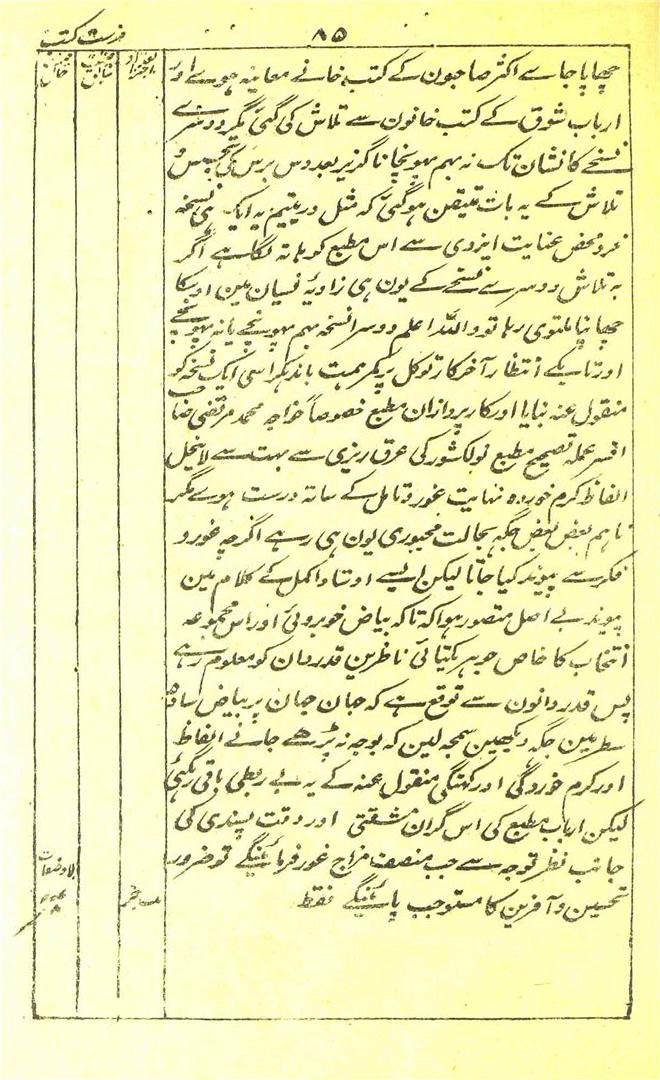 ۸۵
فہرست کتب
تعداد اجزا
چھاپا جاے اکثر صاحبون کے کتب خانے معاینہ ہوے اور
ارباب شوق کے کتب خانون سے تلاش کی گئی مگر دوسرے
نسخے کا نشان تک نہ بہم پہونچا ناگزیر بعد دس برس کی تجسس و
تلاش کے یہ بات متیقن ہو گئی کہ مثل در یتیم یہ ایک ہی نسخہ
فرد محض عنایت ایزدی سے اس مطبع کو ہاتہ لگا ہے اگر
بہ تلاش دوسرے نسخے کے یون ہی زاویۂ نسیان مین اوسکا
چھاپنا ملتوی رہا تو واللہ اعلم دوسرا نسخہ بہم پہونچے یا نہ پہونچے
اور تا بکے انتظار آخرکار توکل پر کمر ہمت باندہکر اسی ایک نسخہ کو
منقول عنہ بنایا اور کارپردازان مطبع خصوصاً خواجہ محمد مرتضی صاحب
افسر عملہ تصحیح مطبع نولکشور کی عرق ریزی سے بہت سے لاینحل
الفاظ کرم خوردہ نہایت غور و تامل کے ساتہ درست ہوے مگر
تاہم بعض بعض جگہ بحالت مجبوری یون ہی رہے اگرچہ غور و
فکر سے پیوند کیا جاتا لیکن ایسے اوستاد اکمل کے کلام مین
پیوند بے اصل متصور ہوا کہ تا کہ بیاض خوبروئی اور اس مجموعہ
انتخاب کا خاص جوہر یکتائی ناظرین قدردان کو معلوم رہے
پس قدردانون سے توقع ہے کہ جان جان پر بیاض سادہ
سطر مین جگہ دیکہین سمجہ لین کہ بوجہ نہ پڑھے جانے الفاظ
اور کرم خوردگی اور کہنگی منقول عنہ کے یہ بے ربطی باقی رکھی گئی
لیکن ارباب مطبع کی اس گران مشقتی اور دقت پسندی کی
جانب نظر توجہ سے جب منصف مزاج غور فرمائینگے تو ضرور
تحسین و آفرین کا مستوجب پائینگے فقط